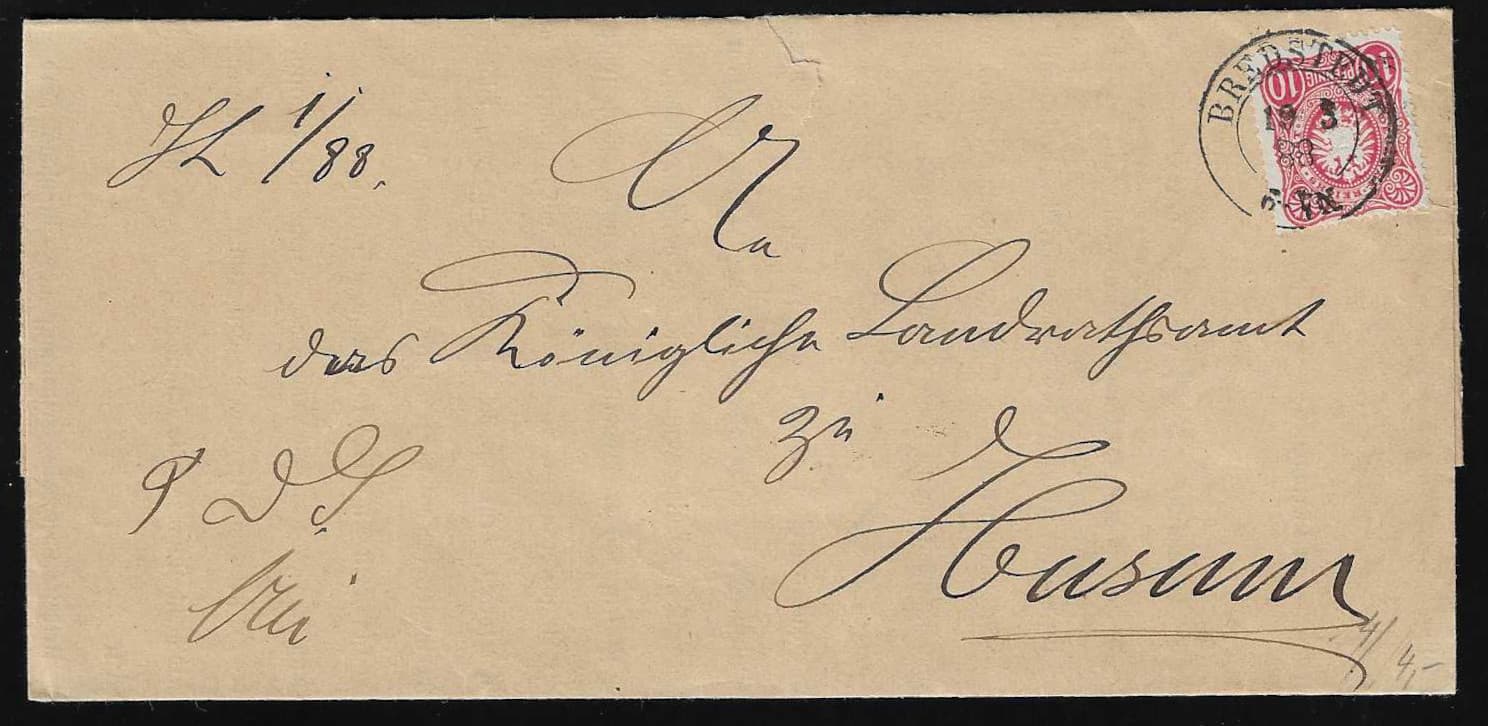 1/88.
An
das Königliche Landrathsamt
zu
Husum
BREDSTEDT
19 3
88
10
PFENNIG
4,-